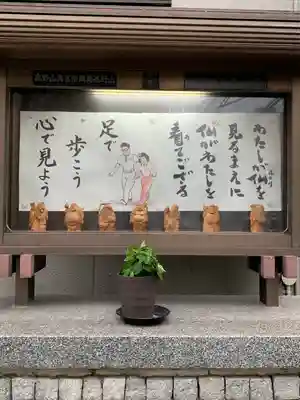 わたしが仏を
見るまえに
仏がわたしを
着てござる
足で
歩こう
心で見よう